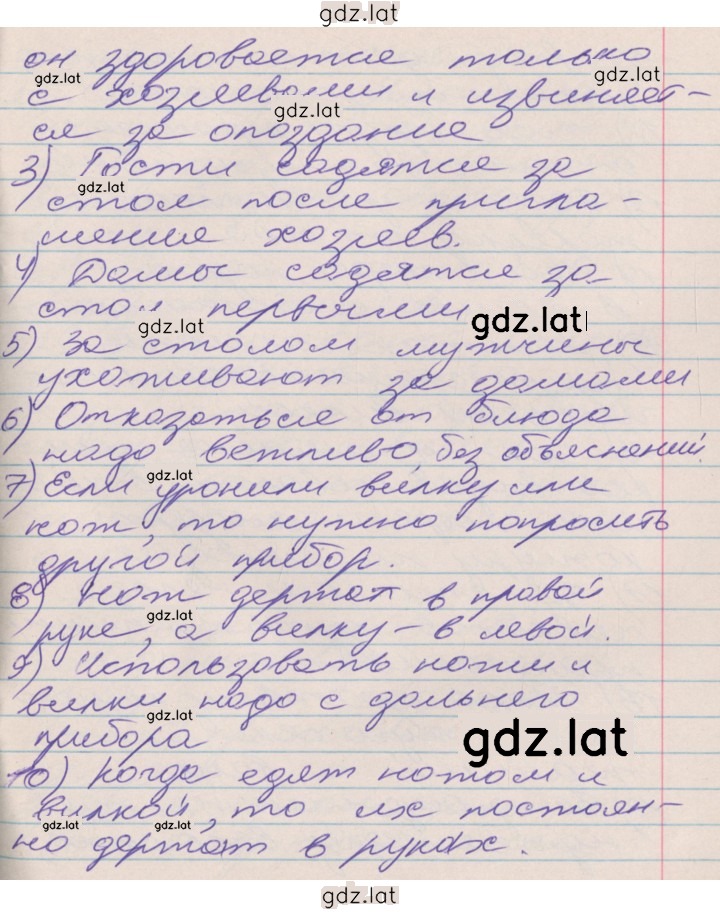 gdz.lat
он здоровается только
gdz.lat gdz.lat
с хозяевами и извиняет-
gdz.lat
ся за опоздание
3) Гости садятся за
gdz.lat
стол после пригла-
шения хозяев.
4) Дамы садятся за
стол первыми
gdz.lat gdz.lat
5) За столом мужчины
ухаживают за дамами
6) Отказаться от блюда
надо вежливо без объяснений.
gdz.lat
7) Если уронили вилку или
нож, то нужно попросить
другой прибор.
8) Нож держат в правой
gdz.lat
руке, а вилку – в левой.
9) Использовать ножи и
вилки надо с дальнего
gdz.lat
прибора
gdz.lat
10) Когда едят ножом и
вилкой, то их постоян-
gdz.lat gdz.lat
но держат в руках.
gdz.lat